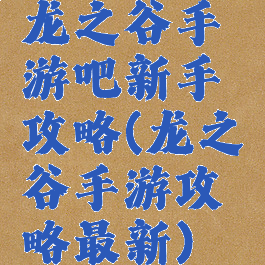 龙之谷手
游吧新手
攻略(龙之
谷手游攻
略最新)